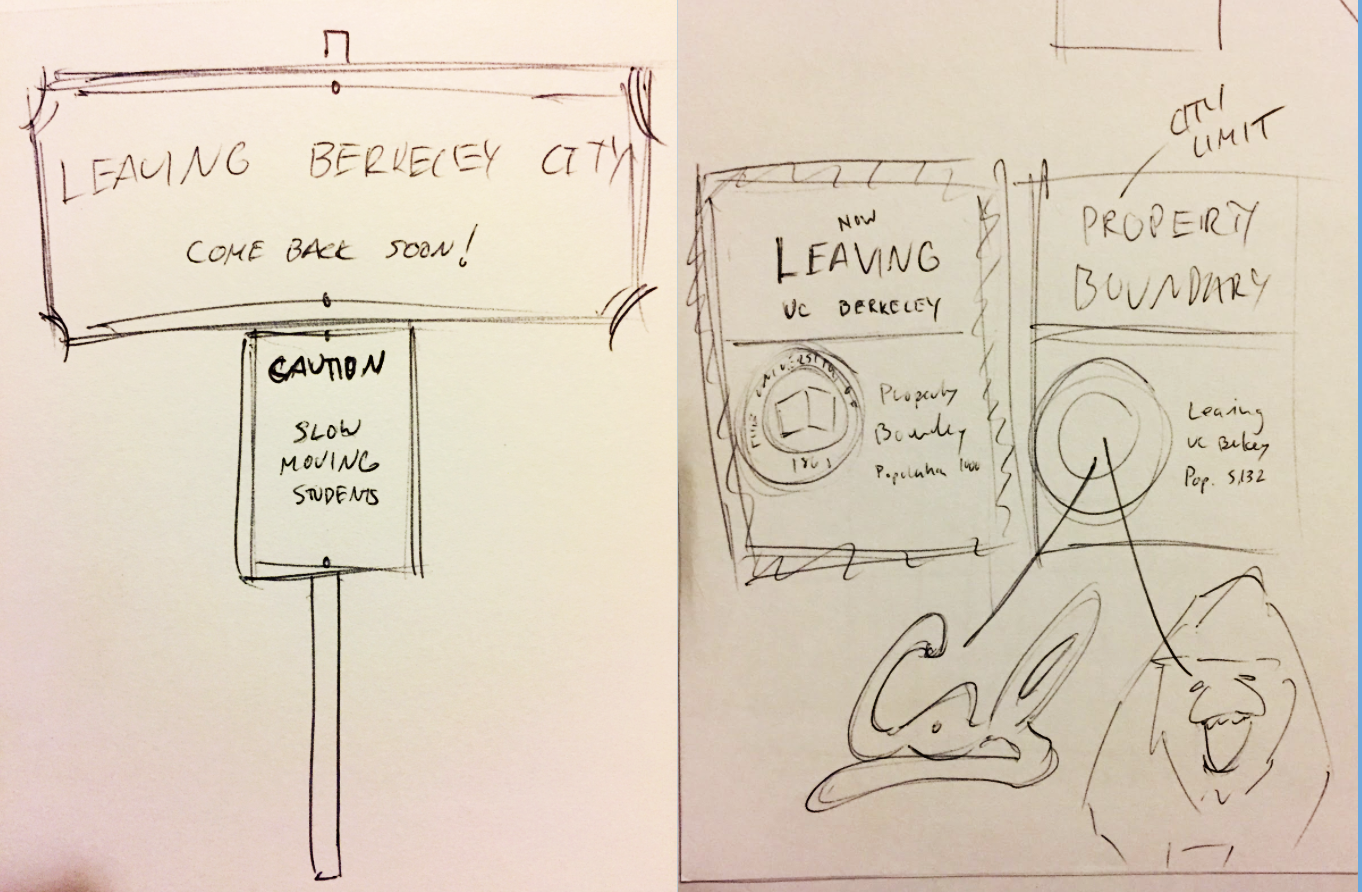 LEAVING BERKELEY CITY
COME BACK SOON!
CAUTION
SLOW
MOVING
STUDENTS
CITY
LIMIT
NOW
LEAVING
UC BERKELEY
THE UNIVERSITY OF
Property
Boundary
Population 1000
PROPERTY
BOUNDARY
Leaving
UC Berkeley
Pop. 5,132